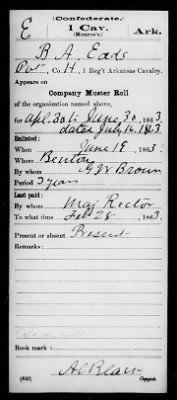 (Confederate.)
E 1 Cav. Ark.
(Monroe's)
B A Eads
Pvt, Co. H, 1 Reg't Arkansas Cavalry.
Appears on
Company Muster Roll
of the organization named above,
for Apl. 30 to June 30, 1863.
dated July 16, 1863
Enlisted:
When June 18, 1863.
Where Benton
By whom G W Brown
Period 3 years
Last paid:
By whom Maj. Rector
To what time Feb 28, 1863.
Present or absent Present
Remarks:
Book mark:
(642) Copyist.